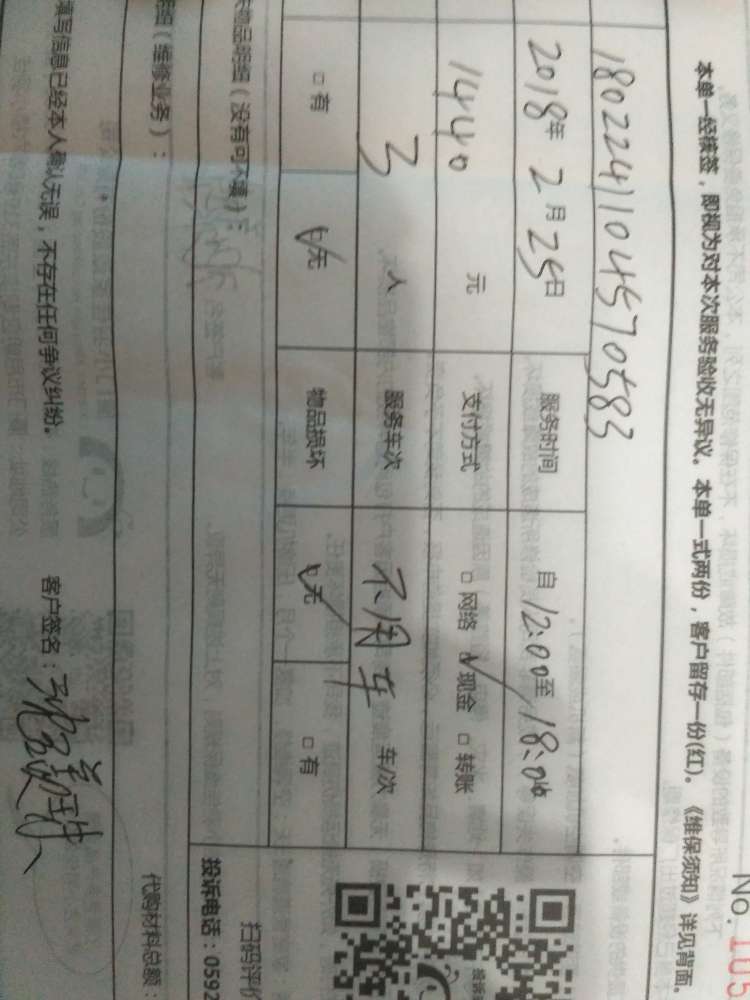 No. 105
本单一经核签，即视为对本次服务验收无异议。本单一式两份，客户留存一份(红)。《维保须知》详见背面。
1802241104570583
2018年2月25日 服务时间 自12:00至18:00
1440元 支付方式 □网络 ☑现金 □转账
3人 服务车次 不用车 车/次
□有 ☑无 物品损坏 ☑无 □有
物品明细（没有可不填）：
扫码评价
投诉电话：0592
（维修业务）：
代购材料总额：
填写信息已经本人确认无误，不存在任何争议纠纷。 客户签名：